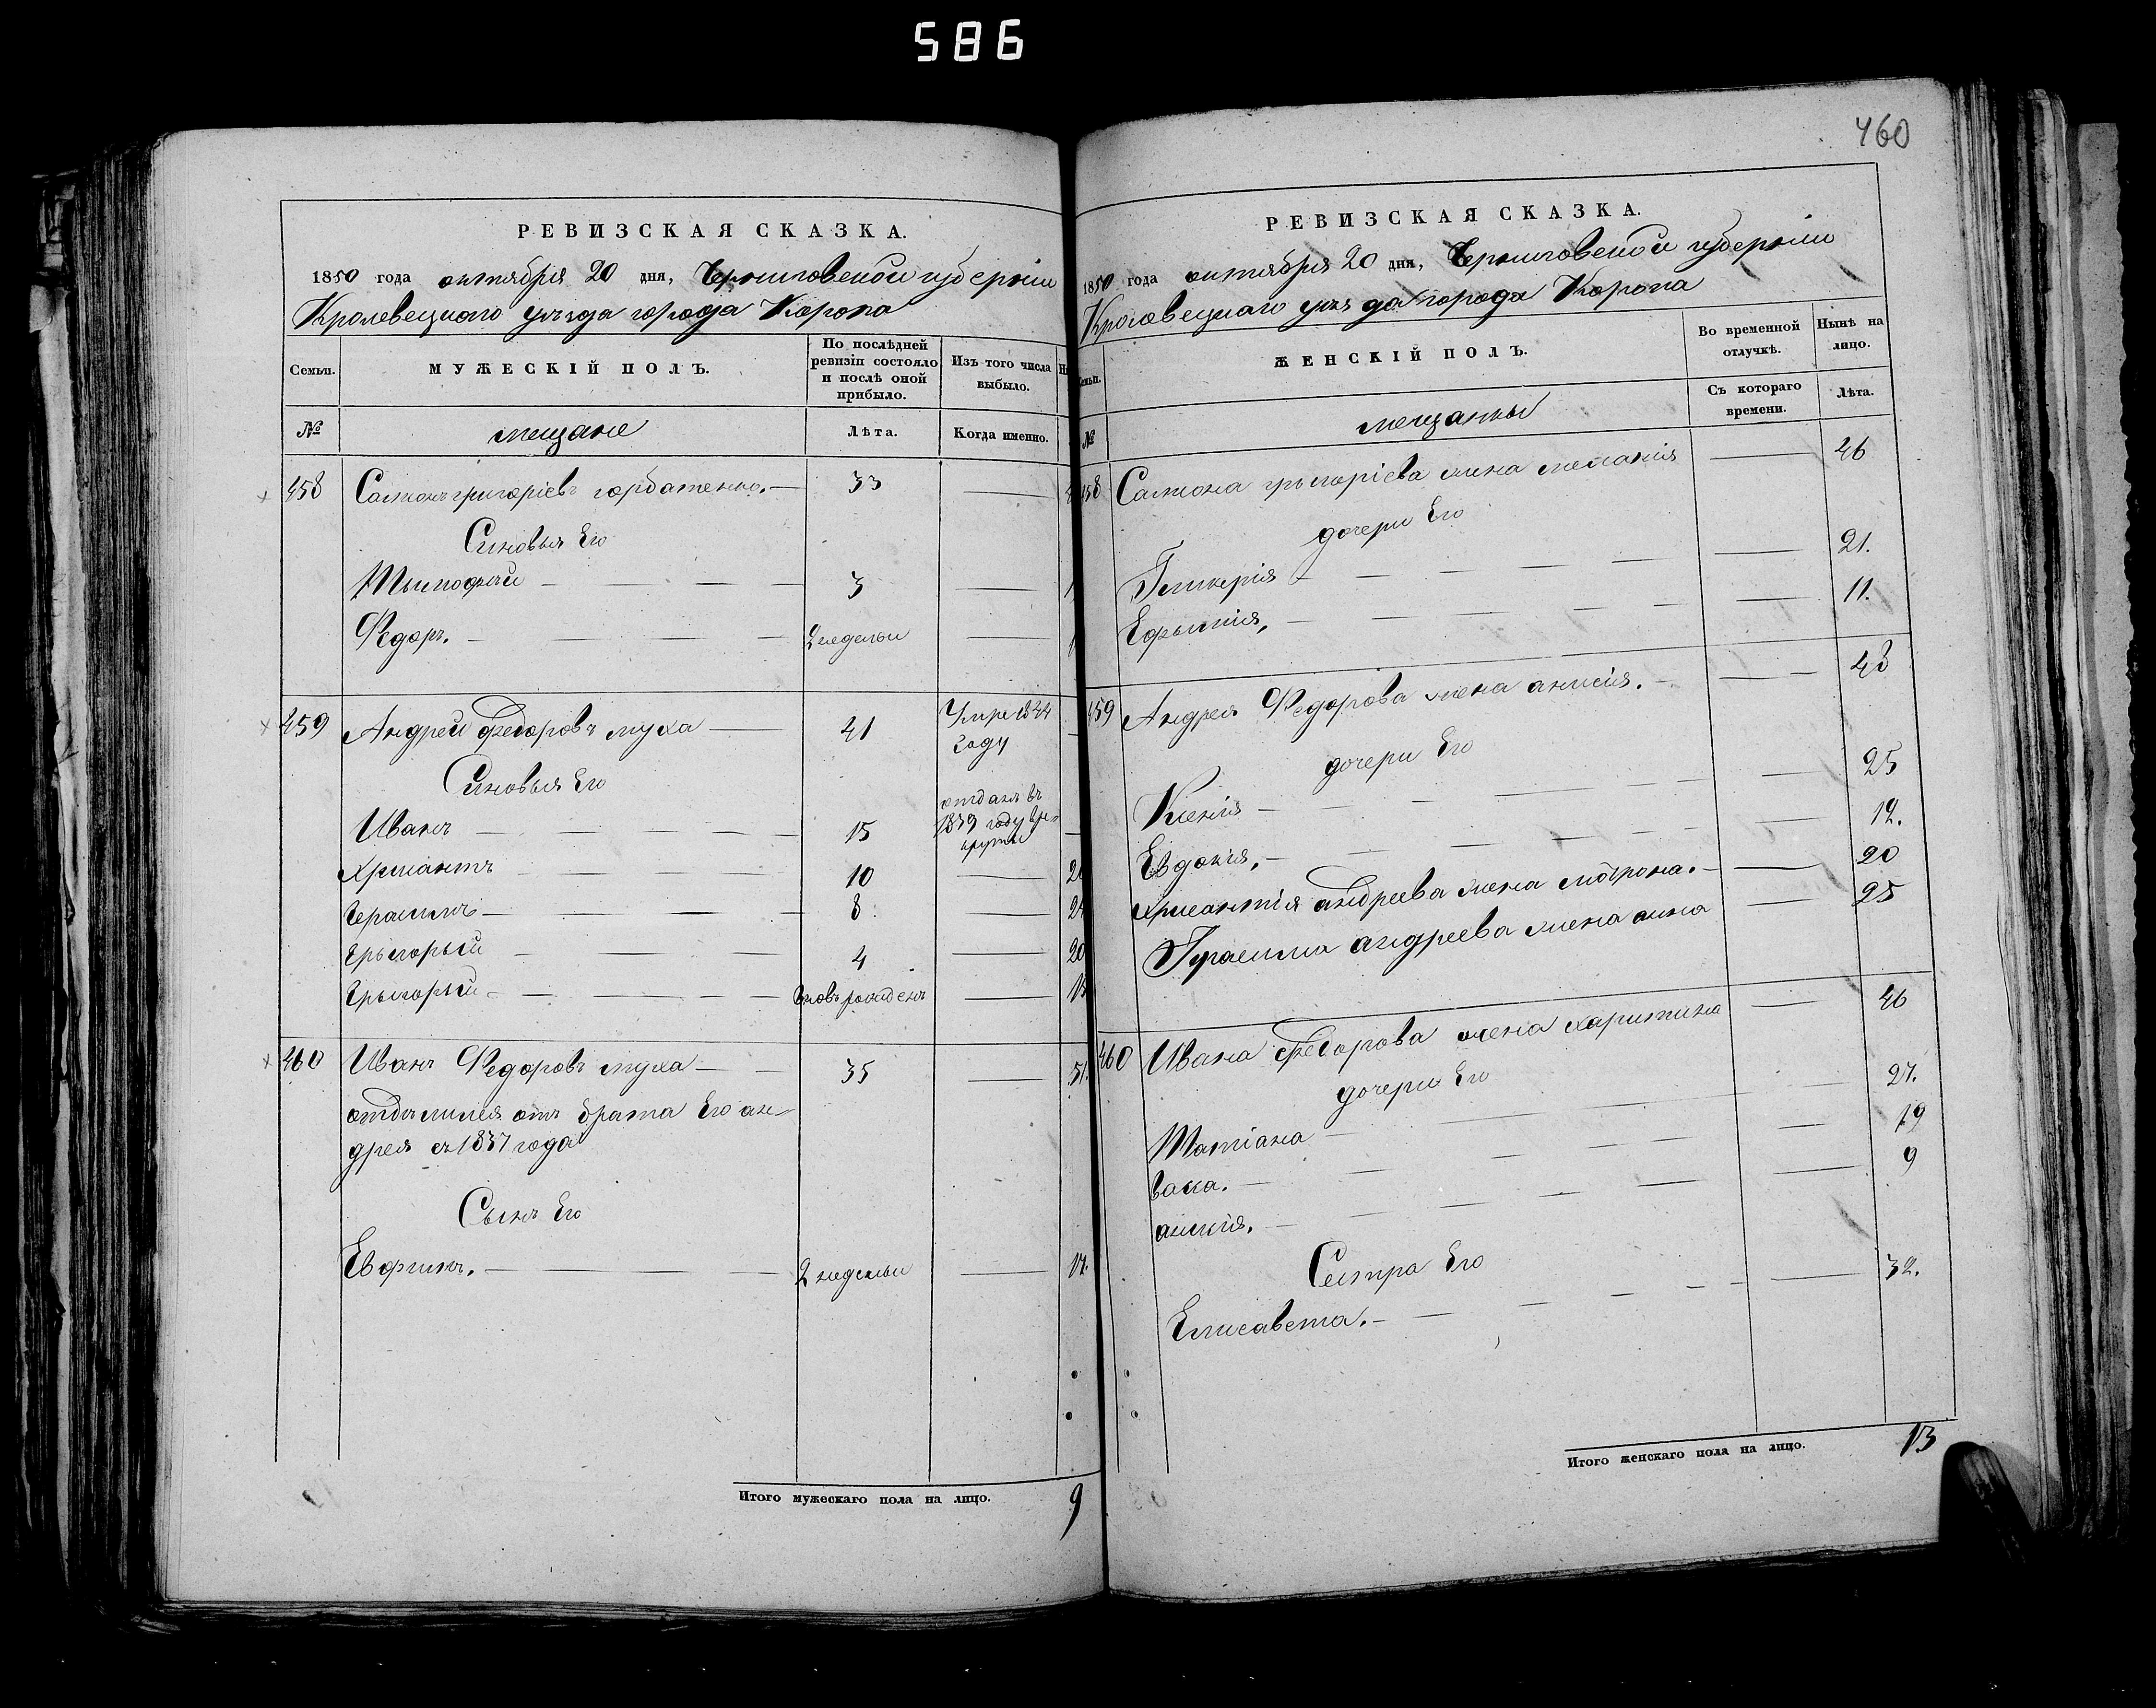 586
РЕВИЗСКАЯ СКАЗКА.
1850 года октября 20 дня, Черниговской губерніи
Кролевецкаго уѣзда города Коропа
Семьи.
МУЖЕСКІЙ ПОЛЪ.
По послѣдней ревизіи состояло и послѣ оной прибыло.
Изъ того числа выбыло.
№
мещане
Лѣта.
Когда именно.
458 Самсонъ григоріевъ горбатенко. 33
Синовья Его
Тымофѣй 3
Федоръ. 2 недельи
459 Андрей федоровъ муха 41 Умре 1844 году
Синовья Его
Иванъ 15 отданъ въ 1839 году въ рекруты
Хрисантъ 10
Герасимъ 8
Грыгорый 4
Грыгорый вновь рожденъ
460 Иванъ Федоровъ муха 35 51.
отдѣлился отъ брата Его ан-
дрея съ 1837 года
Сынъ Его
Евфимъ. 2 недельи 17.
Итого мужескаго пола на лицо. 9
460
РЕВИЗСКАЯ СКАЗКА.
1850 года октября 20 дня, Черниговской губерніи
Кроловецкаго уѣзда города Коропа
Семьи.
ЖЕНСКІЙ ПОЛЪ.
Во временной отлучкѣ.
Нынѣ на лицо.
Съ котораго времени.
Лѣта.
№
мещанки
458 Самсона грыгоріева жена меланія 46
дочери Его
Гликерія 21.
Ефимія, 11.
459 Андрея Федорова жена анисія. 48
дочери Его
Ксенія 25
Евдокія, 12.
Хрисантія андреева жена мотрона. 20
Герасима андреева жена анна 25
460 Ивана федорова жена харитина 46
дочери Его
Татіана 27.
васса. 19
анисія. 9
Сестра Его
Елисавета. 32.
Итого женскаго пола на лицо. 13